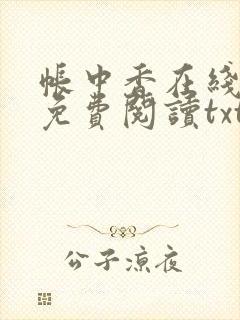 帳中香在綫
免費閱讀txt
公子涼夜